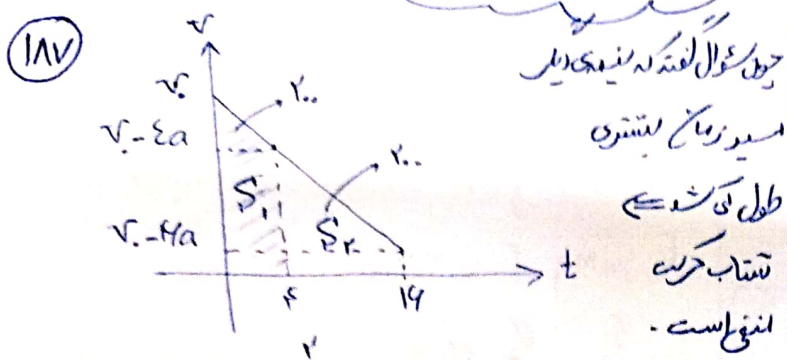 ۱۸۷
v
v₀
v₀-۴a
v₀-۱۶a
۲۰۰
۲۰۰
S₁
S₂
۴
۱۶
t
۲
چون سؤال گفته که نیمه‌ی دیگر
مسیر زمان بیشتری
طول می‌کشد ⇒
شتاب حرکت
منفی است.